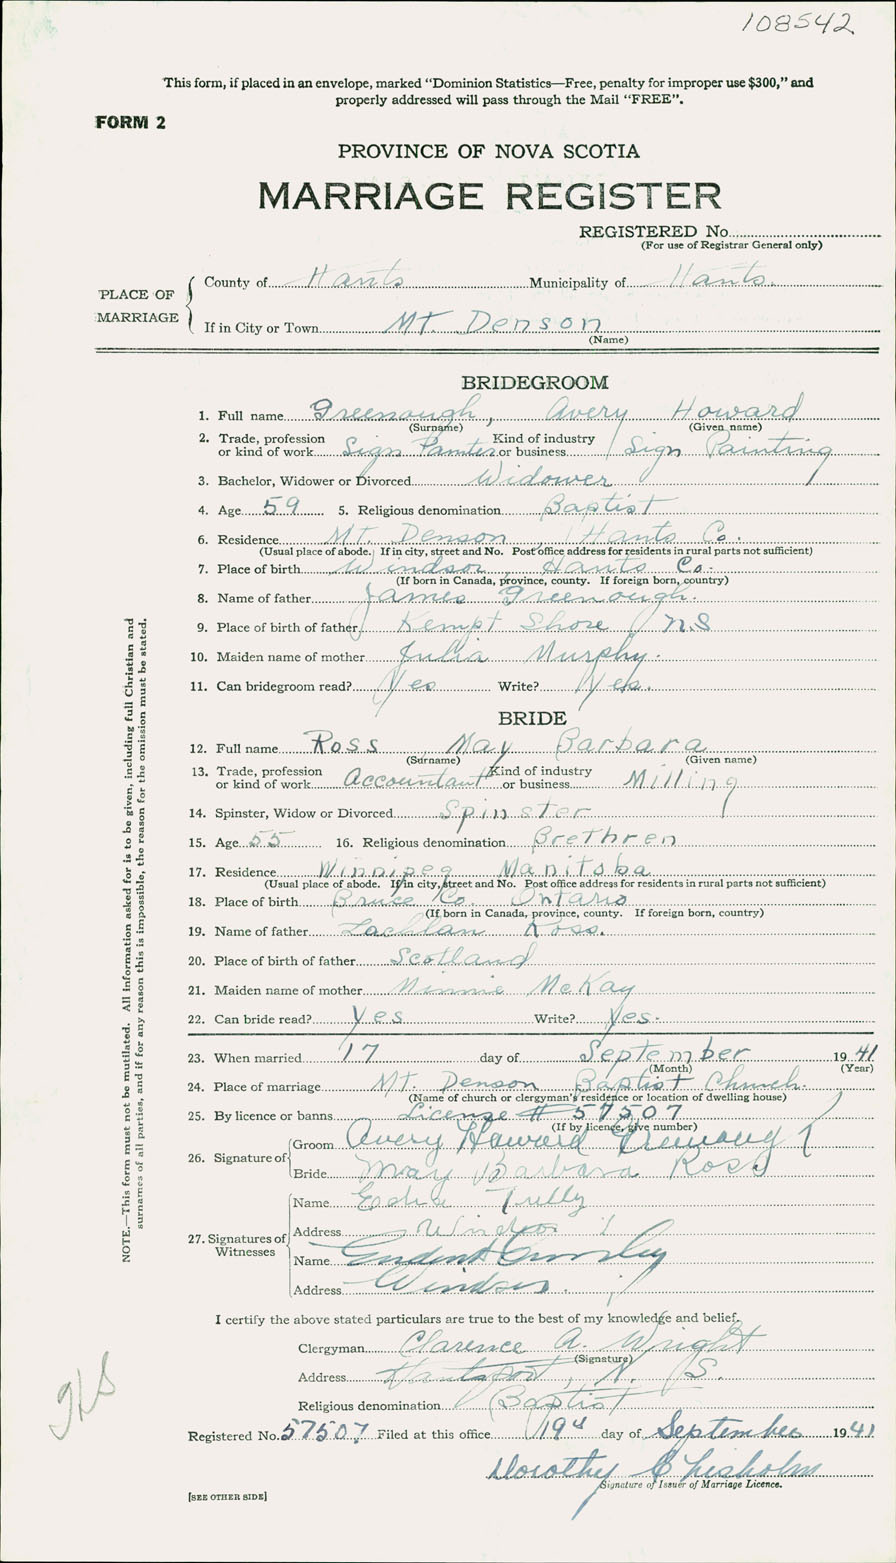 108542
This form, if placed in an envelope, marked “Dominion Statistics—Free, penalty for improper use $300,” and
properly addressed will pass through the Mail “FREE”.
FORM 2
PROVINCE OF NOVA SCOTIA
MARRIAGE REGISTER
REGISTERED No.
(For use of Registrar General only)
PLACE OF MARRIAGE
County of Hants Municipality of Hants.
If in City or Town Mt. Denson
(Name)
BRIDEGROOM
1. Full name Greenough, Avery Howard
(Surname) (Given name)
2. Trade, profession or kind of work Sign Painter Kind of industry or business Sign Painting
3. Bachelor, Widower or Divorced Widower
4. Age 59 5. Religious denomination Baptist
6. Residence Mt. Denson, Hants Co.
(Usual place of abode. If in city, street and No. Post office address for residents in rural parts not sufficient)
7. Place of birth Windsor, Hants Co.
(If born in Canada, province, county. If foreign born, country)
8. Name of father James Greenough.
9. Place of birth of father Kempt Shore, N.S
10. Maiden name of mother Julia Murphy.
11. Can bridegroom read? Yes Write? Yes.
BRIDE
12. Full name Ross, May Barbara
(Surname) (Given name)
13. Trade, profession or kind of work Accountant Kind of industry or business Milling
14. Spinster, Widow or Divorced Spinster
15. Age 55 16. Religious denomination Brethren
17. Residence Winnipeg Manitoba
(Usual place of abode. If in city, street and No. Post office address for residents in rural parts not sufficient)
18. Place of birth Bruce Co. Ontario
(If born in Canada, province, county. If foreign born, country)
19. Name of father Lachlan Ross.
20. Place of birth of father Scotland
21. Maiden name of mother Minnie McKay
22. Can bride read? Yes Write? Yes.
23. When married 17 day of September 1941
(Month) (Year)
24. Place of marriage Mt. Denson Baptist Church.
(Name of church or clergyman's residence or location of dwelling house)
25. By licence or banns License # 57507
(If by licence, give number)
26. Signature of
Groom Avery Howard Greenough
Bride May Barbara Ross
27. Signatures of Witnesses
Name Edna Tully
Address Windsor
Name
Address Windsor.
I certify the above stated particulars are true to the best of my knowledge and belief.
Clergyman Clarence A. Wright
(Signature)
Address Hantsport, N. S.
Religious denomination Baptist
Registered No. 57507 Filed at this office 19th day of September 1941
Dorothy Chisholm
Signature of Issuer of Marriage Licence.
[SEE OTHER SIDE]
NOTE.—This form must not be mutilated. All information asked for is to be given, including full Christian and
surnames of all parties, and if for any reason this is impossible, the reason for the omission must be stated.